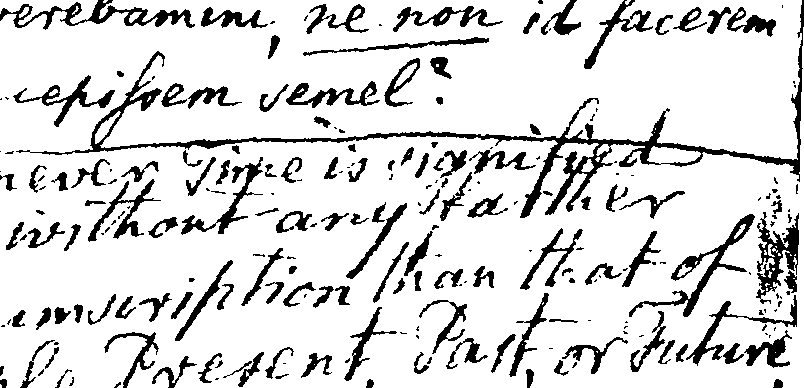 verebamini, ne non id facerem
cepissem semel?
never Time is signified
without any farther
umscription than that of
ple Present, Past, or Future,